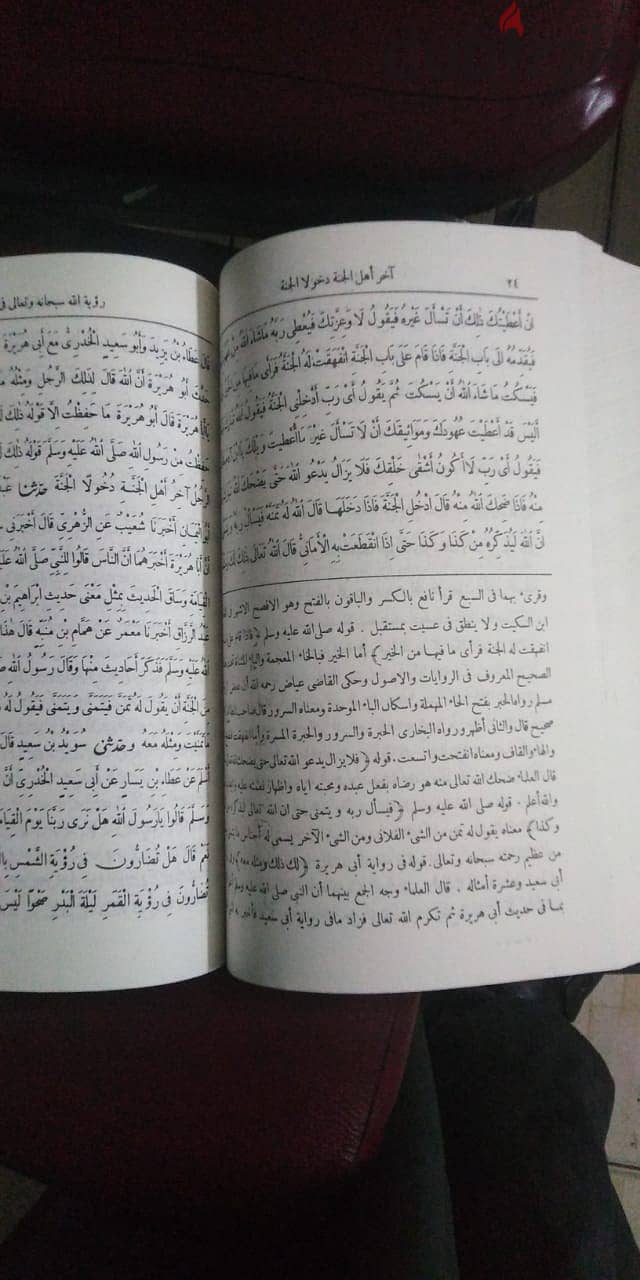 ٢٤ آخر أهل الجنة دخولا الجنة
إِنْ أَعْطَيْتُكَ ذٰلِكَ أَنْ تَسْأَلَ غَيْرَهُ فَيَقُولُ لَا وَعِزَّتِكَ فَيُعْطِى رَبَّهُ مَاشَاءَ اللهُ مِنْ
فَيُقَدِّمُهُ الَى بَابِ الْجَنَّةِ فَاذَا قَامَ عَلَى بَابِ الْجَنَّةِ انْفَهَقَتْ لَهُ الْجَنَّةُ فَرَأَى مَافِيهَا مِنَ
فَيَسْكُتُ مَا شَاءَ اللهُ أَنْ يَسْكُتَ ثُمَّ يَقُولُ أَىْ رَبِّ أَدْخِلْنِى الْجَنَّةَ فَيَقُولُ اللهُ
أَلَيْسَ قَدْ أَعْطَيْتَ عُهُودَكَ وَمَوَاثِيقَكَ أَنْ لَا تَسْأَلَ غَيْرَ مَا أُعْطِيتَ وَيْلَكَ يَا ابْنَ آدَمَ
فَيَقُولُ أَىْ رَبِّ لَا أَكُونُ أَشْقَى خَلْقِكَ فَلَا يَزَالُ يَدْعُو اللهَ حَتَّى يَضْحَكَ اللهُ
مِنْهُ فَاذَا ضَحِكَ اللهُ مِنْهُ قَالَ ادْخُلِ الْجَنَّةَ فَاذَا دَخَلَهَا قَالَ اللهُ لَهُ تَمَنَّهْ فَيَسْأَلُ رَبَّهُ
انَّ اللهَ لَيُذَكِّرُهُ مِنْ كَذَا وَكَذَا حَتَّى إِذَا انْقَطَعَتْ بِهِ الْأَمَانِىُّ قَالَ اللهُ تَعَالَى ذٰلِكَ لَكَ
وقرىء بهما فى السبع قرأ نافع بالكسر والباقون بالفتح وهو الافصح الاشهر
ابن السكيت ولا ينطق فى عسيت بمستقبل . قوله صلى الله عليه وسلم ﴿فاذا قام على
انفهقت له الجنة فرأى مافيها من الخير﴾ أما الخير فبالخاء المعجمة والياء المثناة
الصحيح المعروف فى الروايات والاصول وحكى القاضى عياض رحمه الله أن بعض
مسلم رواه الحبر بفتح الحاء المهملة واسكان الباء الموحدة ومعناه السرور قال صاحب
صحيح قال والثانى أظهر ورواه البخارى الحبرة والسرور والحبرة المسرة وأما انفهقت
والهاء والقاف ومعناه انفتحت واتسعت . قوله ﴿فلا يزال يدعو الله تعالى حتى يضحك
قال العلماء ضحك الله تعالى منه هو رضاه بفعل عبده ومحبته اياه واظهار نعمته عليه
والله أعلم . قوله صلى الله عليه وسلم ﴿فيسأل ربه ويتمنى حتى ان الله تعالى ليذكره
وكذا﴾ معناه يقول له تمن من الشىء الفلانى ومن الشىء الآخر يسمى له أجناس ما
من عظيم رحمته سبحانه وتعالى . قوله فى رواية أبى هريرة ﴿لك ذلك ومثله معه﴾
أبى سعيد وعشرة أمثاله . قال العلماء وجه الجمع بينهما أن النبى صلى الله عليه وسلم
بما فى حديث أبى هريرة ثم تكرم الله تعالى فزاد مافى رواية أبى سعيد فأخبر به
رؤية الله سبحانه وتعالى
قَالَ عَطَاءُ بْنُ يَزِيدَ وَأَبُو سَعِيدٍ الْخُدْرِىُّ مَعَ أَبِى هُرَيْرَةَ
حَدَّثَ أَبُو هُرَيْرَةَ أَنَّ اللهَ قَالَ لِذٰلِكَ الرَّجُلِ وَمِثْلُهُ
يَا أَبَا هُرَيْرَةَ قَالَ أَبُو هُرَيْرَةَ مَا حَفِظْتُ الَّا قَوْلَهُ ذٰلِكَ
حَفِظْتُ مِنْ رَسُولِ اللهِ صَلَّى اللهُ عَلَيْهِ وَسَلَّمَ قَوْلَهُ ذٰلِكَ
الرَّجُلُ آخِرُ أَهْلِ الْجَنَّةِ دُخُولًا الْجَنَّةَ حدثنا
أَبُو الْيَمَانِ أَخْبَرَنَا شُعَيْبٌ عَنِ الزُّهْرِىِّ قَالَ أَخْبَرَنِى
أَنَّ أَبَا هُرَيْرَةَ أَخْبَرَهُمَا أَنَّ النَّاسَ قَالُوا لِلنَّبِىِّ صَلَّى اللهُ
الْقِيَامَةِ وَسَاقَ الْحَدِيثَ بِمِثْلِ مَعْنَى حَدِيثِ ابْرَاهِيمَ بْنِ
عَبْدُ الرَّزَّاقِ أَخْبَرَنَا مَعْمَرٌ عَنْ هَمَّامِ بْنِ مُنَبِّهٍ قَالَ هٰذَا
اللهُ عَلَيْهِ وَسَلَّمَ فَذَكَرَ أَحَادِيثَ مِنْهَا وَقَالَ رَسُولُ اللهِ
مِنَ الْجَنَّةِ أَنْ يَقُولَ لَهُ تَمَنَّ فَيَتَمَنَّى وَيَتَمَنَّى فَيَقُولُ لَهُ
مَا تَمَنَّيْتَ وَمِثْلَهُ مَعَهُ وحدثنى سُوَيْدُ بْنُ سَعِيدٍ قَالَ
أَسْلَمَ عَنْ عَطَاءِ بْنِ يَسَارٍ عَنْ أَبِى سَعِيدٍ الْخُدْرِىِّ أَنَّ
وَسَلَّمَ قَالُوا يَارَسُولَ اللهِ هَلْ نَرَى رَبَّنَا يَوْمَ
نَعَمْ قَالَ هَلْ تُضَارُّونَ فِى رُؤْيَةِ الشَّمْسِ
تُضَارُّونَ فِى رُؤْيَةِ الْقَمَرِ لَيْلَةَ الْبَدْرِ صَحْوًا لَيْسَ